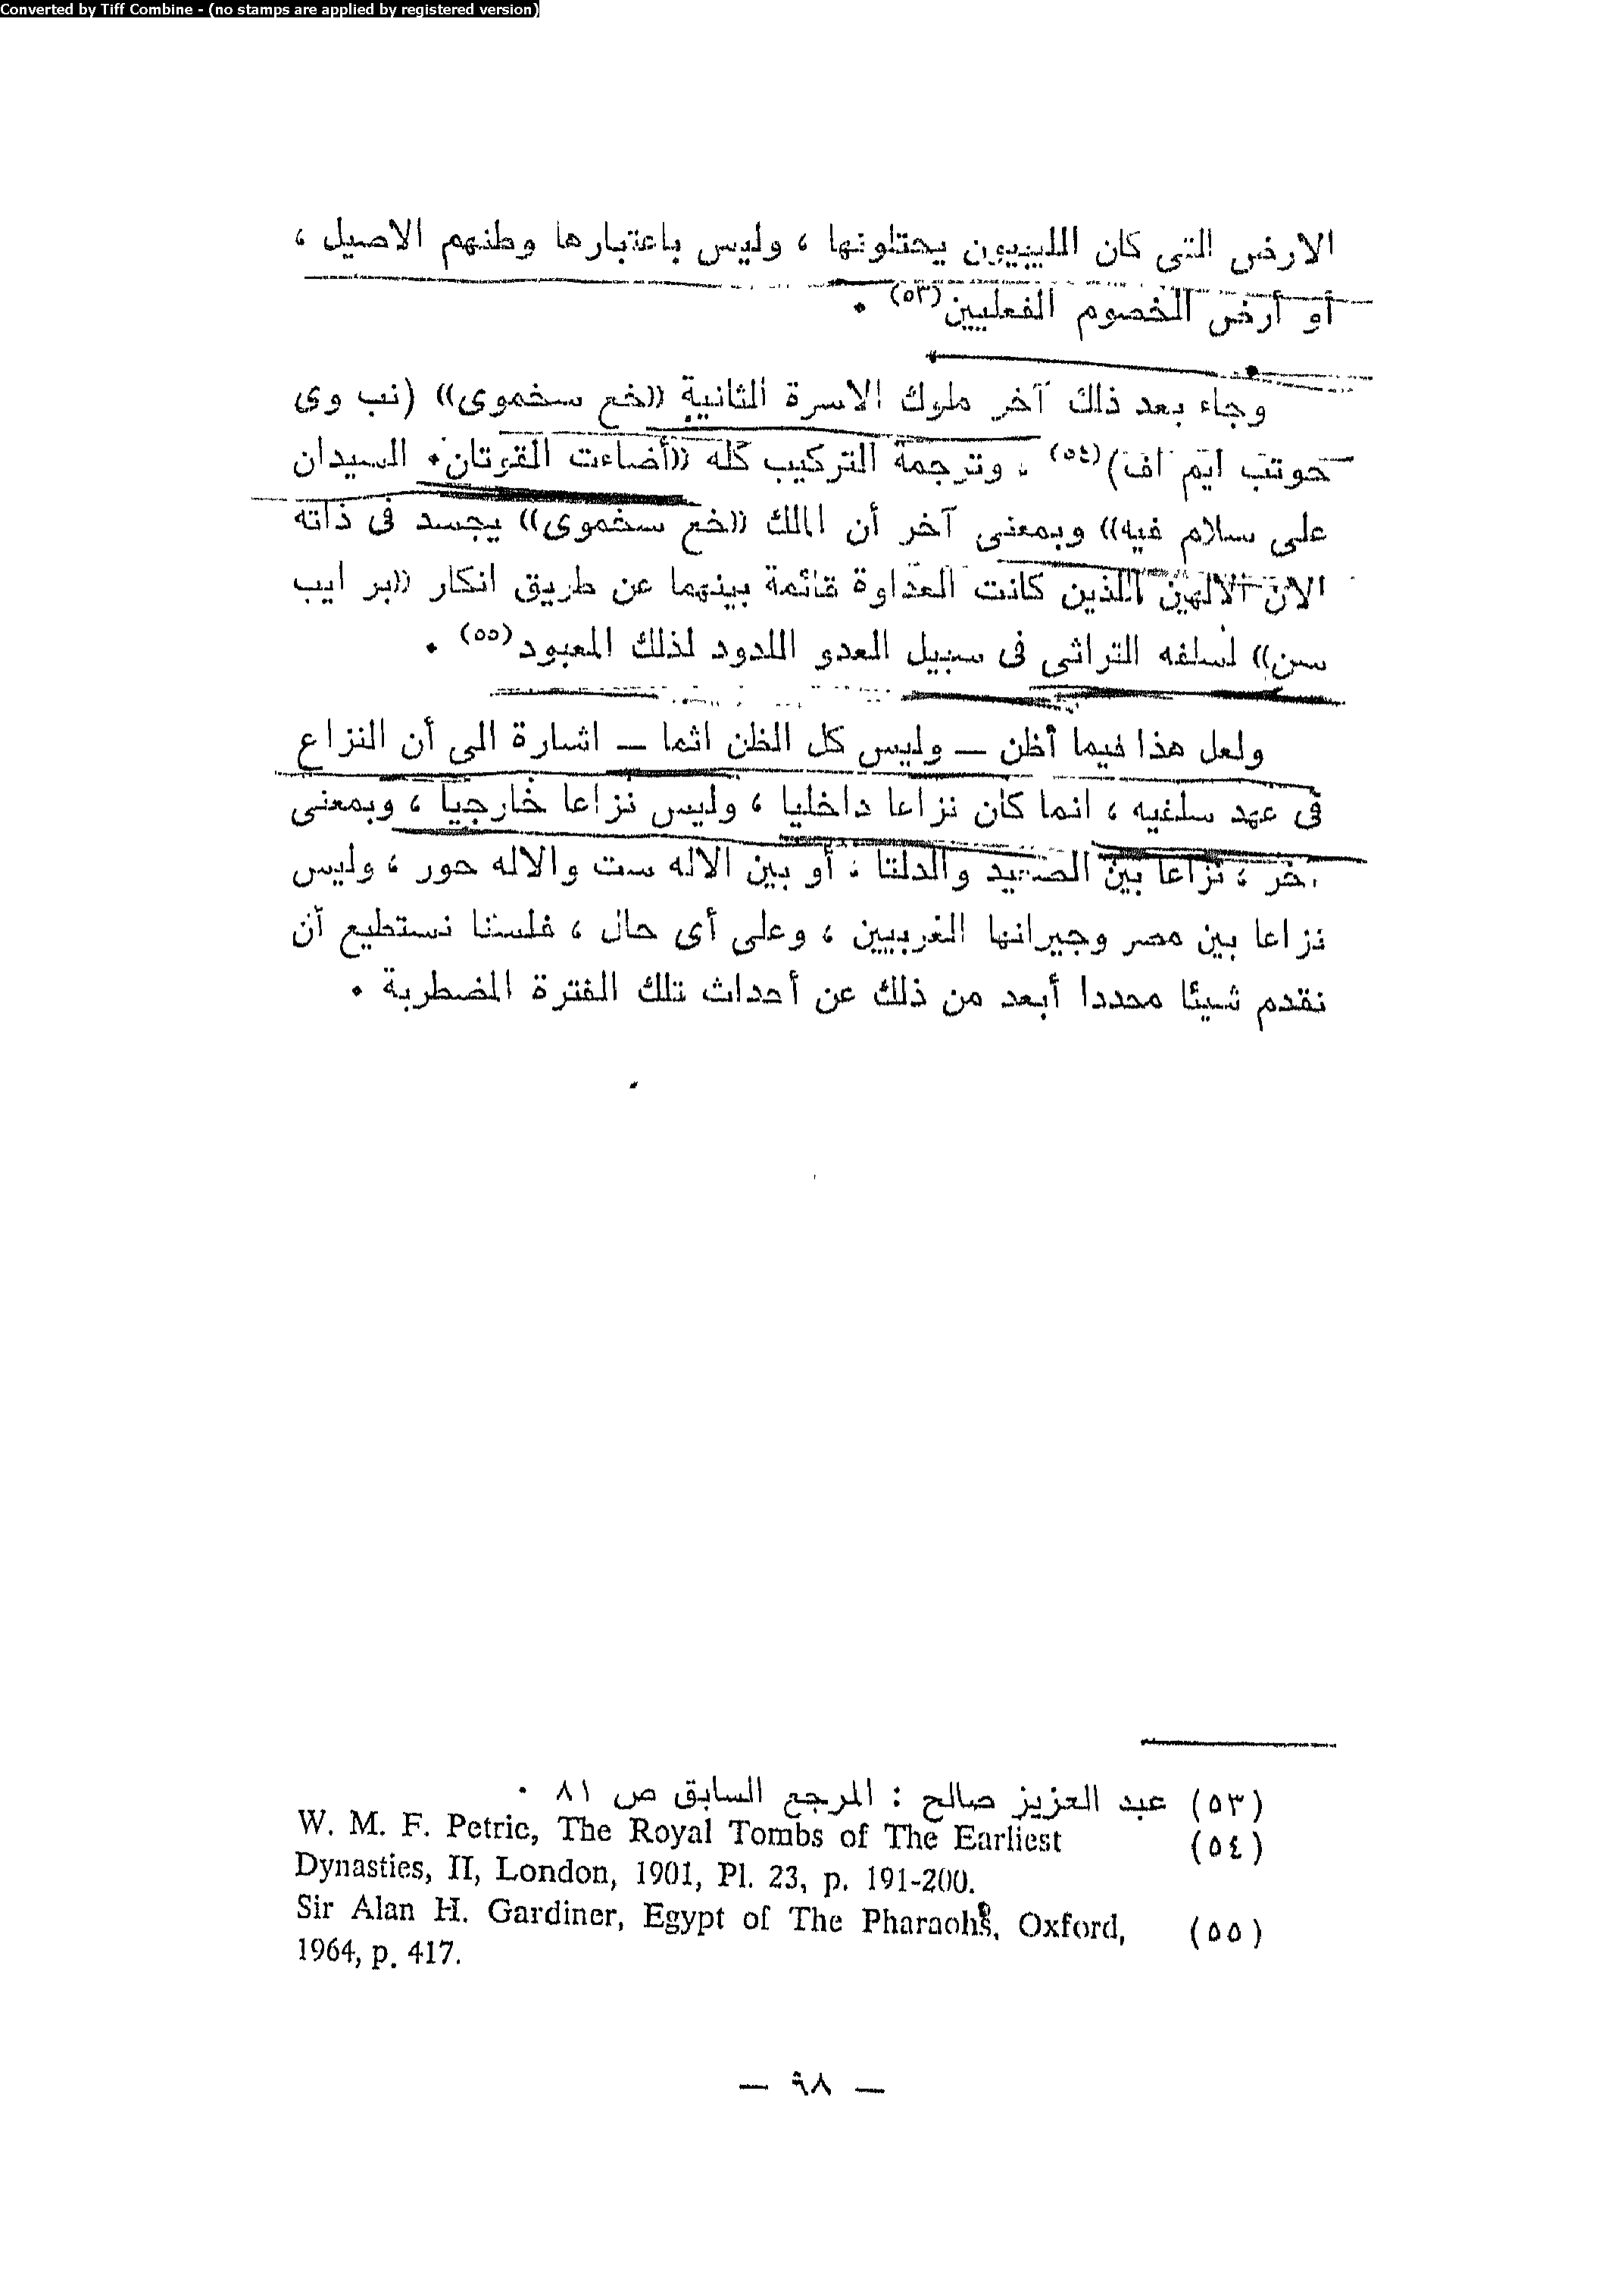 Converted by Tiff Combine - (no stamps are applied by registered version)
الارض التى كان الليبيون يحتلونها ، وليس باعتبارها وطنهم الاصيل ،
أو أرض الخصوم الفعليين(٥٣) .
وجاء بعد ذلك آخر ملوك الاسرة الثانية «خع سخموى» (نب وى
حوتب ايم اف)(٥٤) ، وترجمة التركيب كله «أضاءت القوتان . السيدان
على سلام فيه» وبمعنى آخر أن الملك «خع سخموى» يجسد فى ذاته
الان الالهين اللذين كانت العداوة قائمة بينهما عن طريق انكار «بر ايب
سن» لسلفه التراثى فى سبيل العدو اللدود لذلك المعبود(٥٥) .
ولعل هذا فيما أظن — وليس كل الظن اثما — اشارة الى أن النزاع
فى عهد سلفيه ، انما كان نزاعا داخليا ، وليس نزاعا خارجيا ، وبمعنى
آخر ، نزاعا بين الصعيد والدلتا ، أو بين الاله ست والاله حور ، وليس
نزاعا بين مصر وجيرانها الغربيين ، وعلى أى حال ، فلسنا نستطيع أن
نقدم شيئا محددا أبعد من ذلك عن أحداث تلك الفترة المضطربة .
(٥٣) عبد العزيز صالح : المرجع السابق ص ٨١ .
(٥٤) W. M. F. Petrie, The Royal Tombs of The Earliest
Dynasties, II, London, 1901, Pl. 23, p. 191-200.
(٥٥) Sir Alan H. Gardiner, Egypt of The Pharaohs, Oxford,
1964, p. 417.
— ٩٨ —